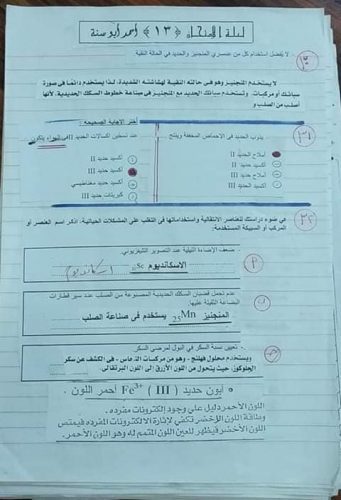 ليلة الامتحان ﴿١٣﴾ أحمد أبو سنة
٣٠
- لا يفضل استخدام كل من عنصري المنجنيز والحديد في الحالة النقية
لا يستخدم المنجنيز وهو في حالته النقية لهشاشته الشديدة، لذا يستخدم دائماً في صورة
سبائك أو مركبات. وتستخدم سبائك الحديد مع المنجنيز في صناعة خطوط السكك الحديدية، لأنها
أصلب من الصلب و
أختر الإجابة الصحيحة :
٣١
يذوب الحديد في الأحماض المخففة وينتج
أملاح الحديد II
أكسيد حديد II
أملاح حديد III
أكسيد الحديد III
عند تسخين أكسالات الحديد II في الهواء يتكون
أكسيد حديد II
أكسيد حديد III
أكسيد حديد مغناطيسي
كبريتات حديد III
٣٢
في ضوء دراستك للعناصر الانتقالية واستخداماتها في التغلب على المشكلات الحياتية، اذكر اسم العنصر أو
المركب أو السبيكة المستخدمة:
- ضعف الإضاءة الليلية عند التصوير التليفزيوني.
الاسكانديوم Sc اسكانديوم
عدم تحمل قضبان السكك الحديدية المصنوعة من الصلب عند سير قطارات
البضاعة الثقيلة عليها.
المنجنيز 25Mn يستخدم في صناعة الصلب
- تعيين نسبة السكر في البول لمرضى السكر
ويستخدم محلول فهلنج، وهو من مركبات النحاس، في الكشف عن سكر
الجلوكوز، حيث يتحول من اللون الأزرق إلى اللون البرتقالي
أيون حديد Fe³⁺ ( III ) أحمر اللون .
اللون الأحمر دليل على وجود إلكترونات مفرده .
وطاقة اللون الأخضر تكفي لإثارة الالكترونات المفرده فيمتص
اللون الأخضر فيظهر للعين اللون المتمم له وهو اللون الأحمر.